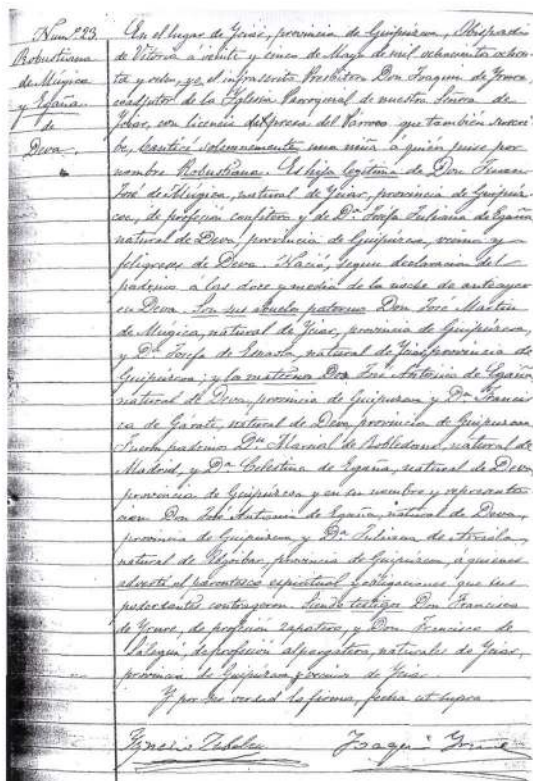 Num.º 23.
Robustiana
de Múgica
y Egaña
de
Deva.
En el lugar de Yciar, provincia de Guipúzcoa, Obispado
de Vitoria á veinte y cinco de Mayo de mil ochocientos ochen-
ta y ocho, yo, el infrascrito Presbítero Don Joaquin de Yrure,
coadjutor de la Yglesia Parroquial de nuestra Señora de
Yciar, con licencia expresa del Párroco que también suscri-
be, bauticé solemnemente una niña á quien puse por
nombre Robustiana. Es hija legítima de Don Juan
José de Múgica, natural de Yciar, provincia de Guipúz-
coa, de profesion confitero y de D.ª Josefa Juliana de Egaña
natural de Deva, provincia de Guipúzcoa, vecinos y
feligreses de Deva. Nació, segun declaracion del
padrino a las doce y media de la noche de anteayer
en Deva. Son sus abuelos paternos Don José Martin
de Múgica, natural de Yciar, provincia de Guipúzcoa,
y D.ª Josefa de, natural de Yciar, provincia de
Guipúzcoa; y los maternos Don José Antonio de Egaña
natural de Deva, provincia de Guipúzcoa y D.ª Francis-
ca de Gárate, natural de Deva, provincia de Guipúzcoa
Fueron padrinos D.n Marcial de Robledano, natural de
Madrid, y D.ª Celestina de Egaña, natural de Deva
provincia de Guipúzcoa y en su nombre y representa-
cion Don José Antonio de Egaña, natural de Deva,
provincia de Guipúzcoa y D.ª Juliana de Arriola,
natural de Elgoibar, provincia de Guipúzcoa, á quienes
advertí el parentesco espiritual y obligaciones que sus
poderdantes contrageron. Siendo testigos Don Francisco
de Yrure, de profesión zapatero, y Don Francisco de
de profesión alpargatero, naturales de Yciar,
provincia de Guipúzcoa y vecinos de Yciar.
Y por ser verdad lo firmo, fecha ut supra.
Ygnacio Zubeldia Joaquin Yrure